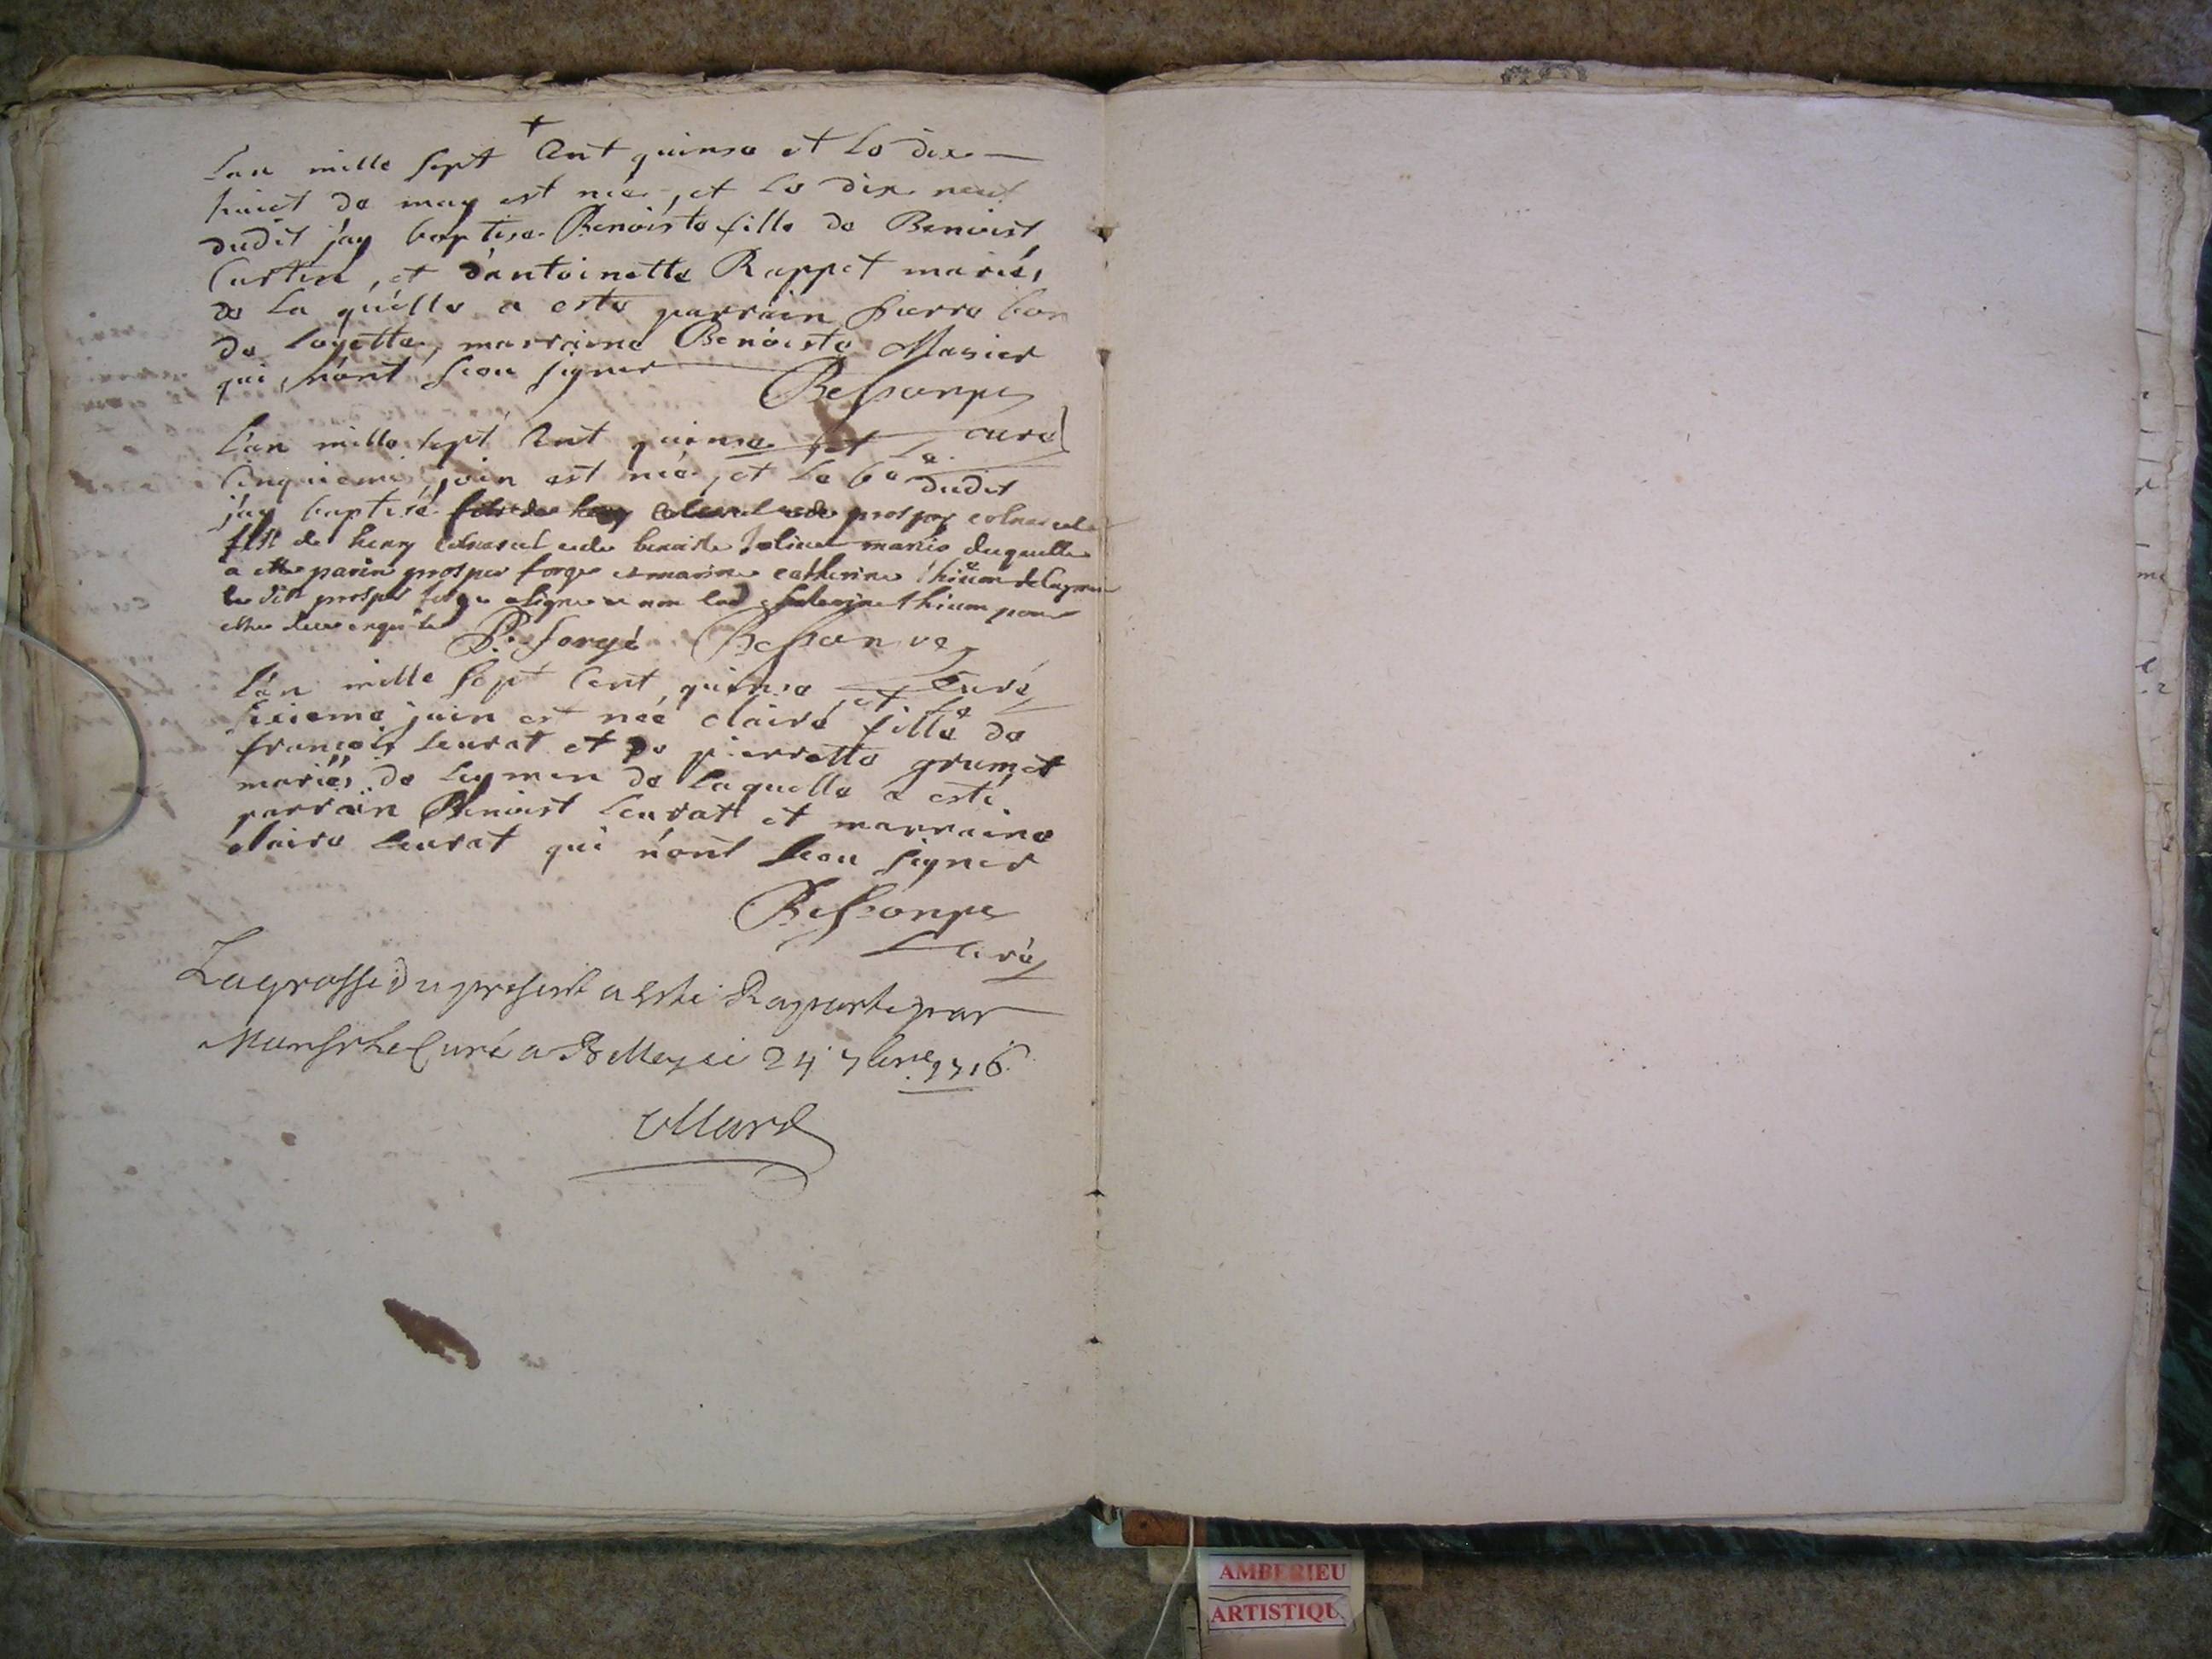 +
Lan mille sept Cent quinse et Le dix
huict de may est née, et Le dix neuf
dudit jay baptisé Benoiste fille de Benoist
Curtin, et d'antoinette Rappet mariés,
de La quelle a esté parrain pierre bon
de Loyette, marraine Benoiste Masier
qui n'ont sceu signer
Bessonpe
curé
L'an mille sept Cent quinse et Le
Cinquieme juin est née, et Le 6e dudit
jay baptisé prosper
fils de henry et de benoiste mariés duquelle
a esté parin prosper forge et marine catherine thieum de Laymen
le dit prosper forge a signé et non lad catherine thieum pour
estre de ce enquise
P. forgé Bessonpe
Curé
L'an mille sept Cent quinse et Le
sixieme juin est née claire fille de
françois Leurat et de pierrette grumet
mariés de Leymen de Laquelle a esté
parrain Benoist Leurat et marraine
claire Leurat qui n'ont sceu signer
Bessonpe
Curé
La grosse du present a Esté Raporté par
Monsr Le Curé a Belley ce 24 7bre 1716
AMBERIEU
ARTISTIQU